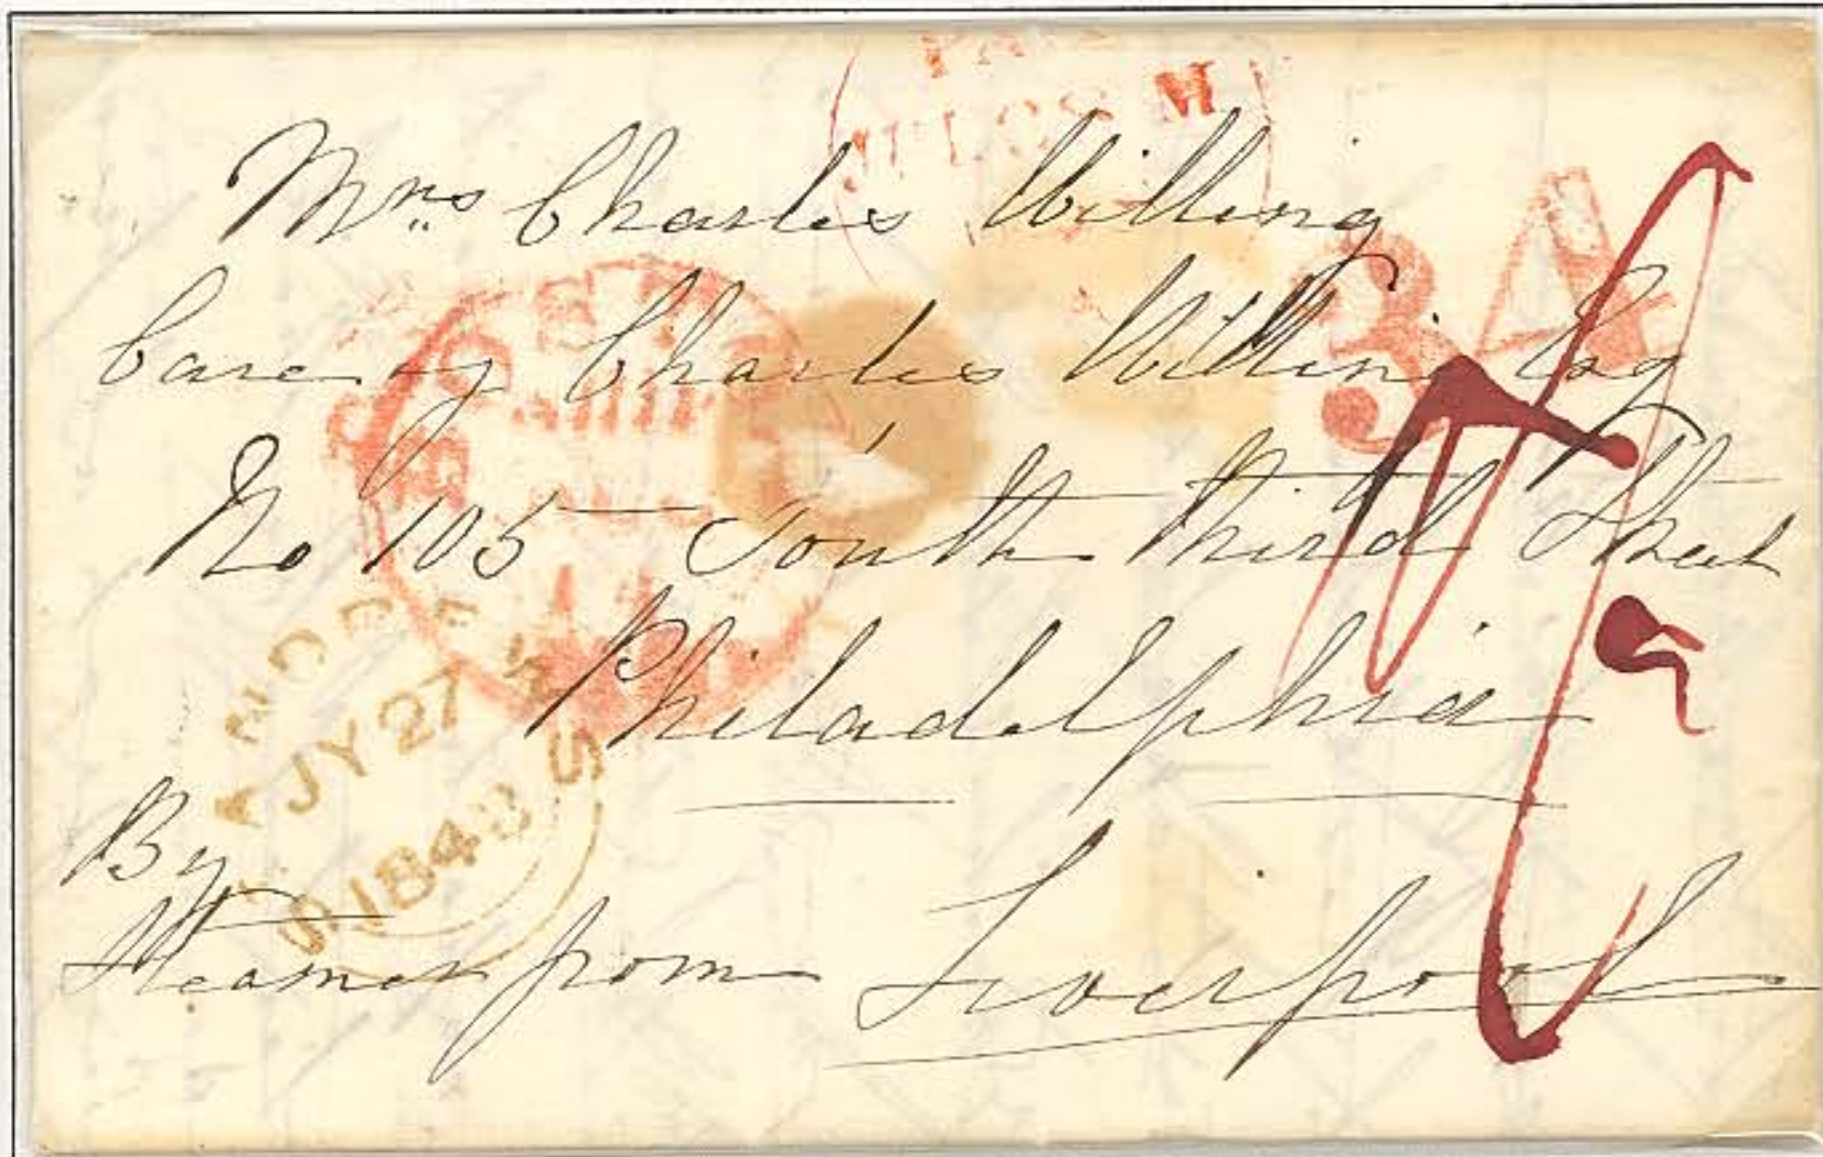 Mrs Charles Willing
Care of Charles Willing Esq
No 105 South Third Street
Philadelphia
By
Steamer from Liverpool
34
ST ANDREWS
JY 27
1843
BOSTON